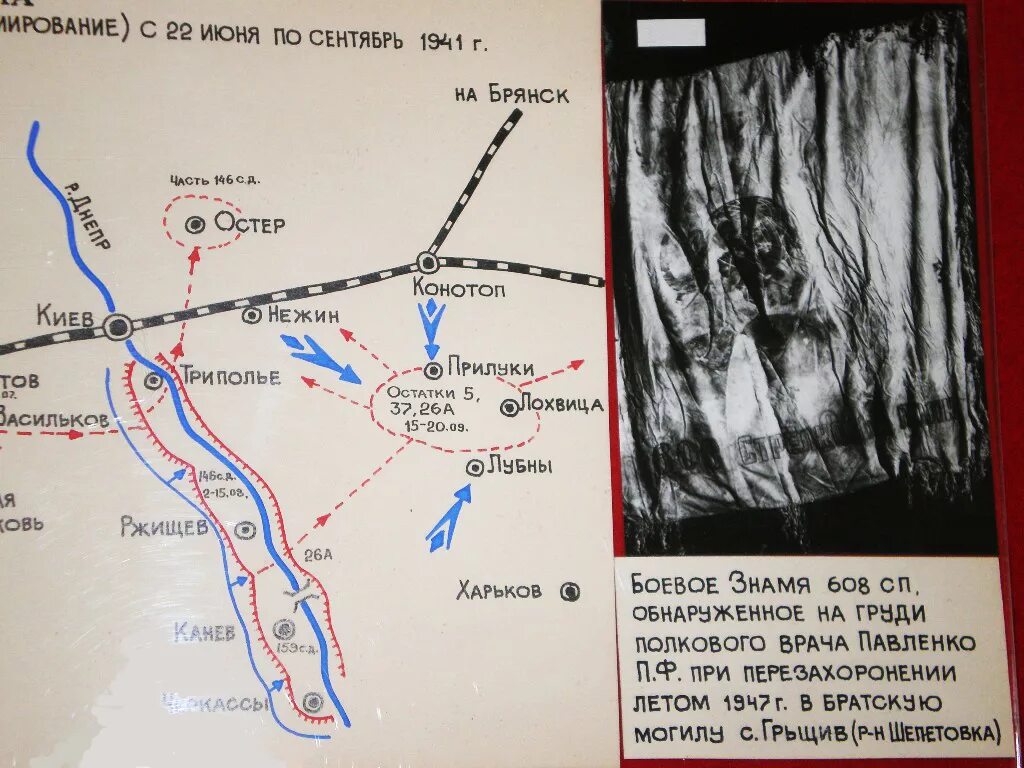 МИРОВАНИЕ) С 22 ИЮНЯ ПО СЕНТЯБРЬ 1941 г.
НА БРЯНСК
ЧАСТЬ 146 С.Д.
р. ДНЕПР
ОСТЕР
КОНОТОП
КИЕВ
НЕЖИН
ПРИЛУКИ
ТРИПОЛЬЕ
ТОВ
ОСТАТКИ 5,
37, 26А
15-20.09.
ЛОХВИЦА
ВАСИЛЬКОВ
ЛУБНЫ
146 С.Д.
2-15.08.
АЯ
КОВЬ
РЖИЩЕВ
26А
ХАРЬКОВ
КАНЕВ
159 С.Д.
ЧЕРКАССЫ
БОЕВОЕ ЗНАМЯ 608 СП,
ОБНАРУЖЕННОЕ НА ГРУДИ
ПОЛКОВОГО ВРАЧА ПАВЛЕНКО
П.Ф. ПРИ ПЕРЕЗАХОРОНЕНИИ
ЛЕТОМ 1947 г. В БРАТСКУЮ
МОГИЛУ С. ГРЫЩИВ (Р-Н ШЕПЕТОВКА)